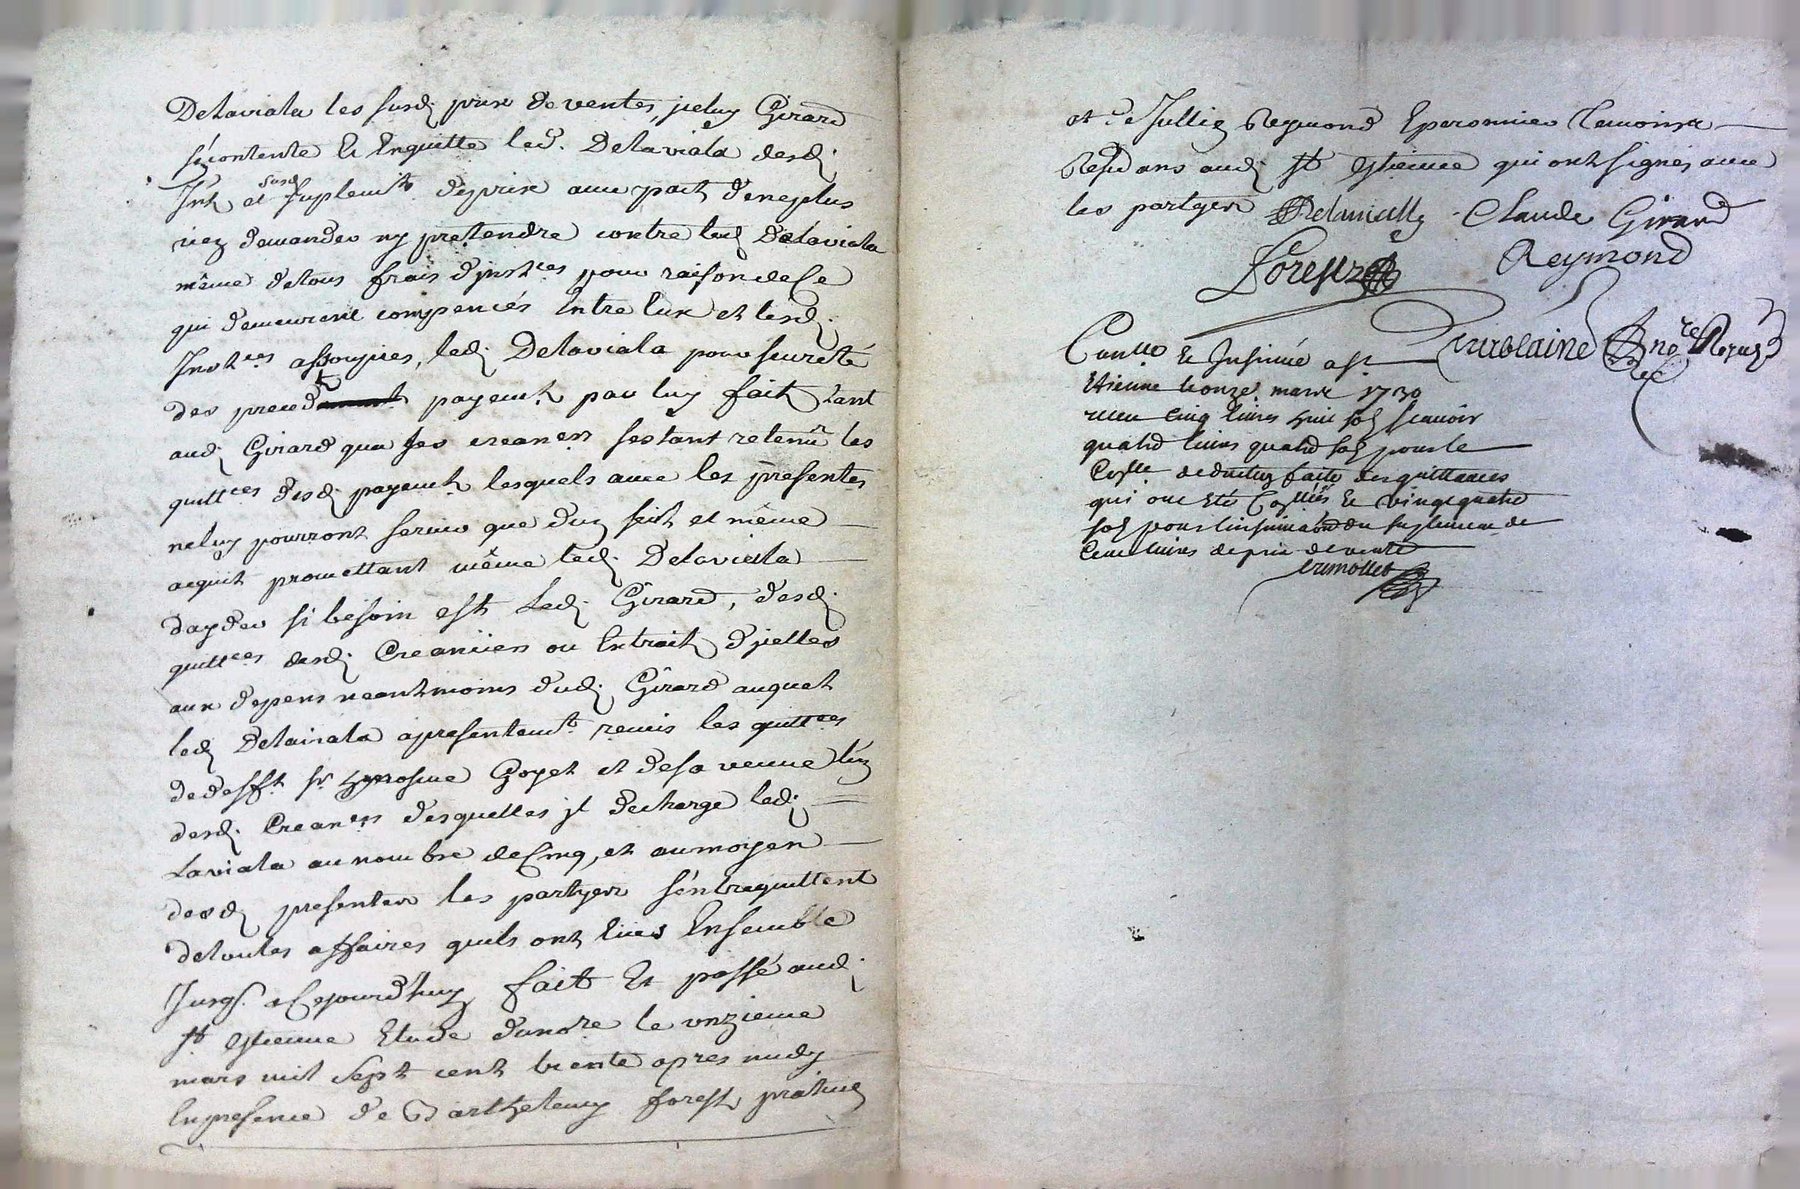 Delaviala les susd. prix de ventes, jceluy Girard
s'econtente Et Enquitte led. Delaviala desd.
Int et susd. suplemt deprix avec pact deneplus
rien demander ny pretendre contre led. Delaviala
même detous frais d'instces pour raison dece
qui demeurent compencés Entre eux et lesd.
Instces assoupies, led. Delaviala pour seureté
des preced.t payemt par luy fait tant
aud. Girard qua ses creancrs sestant retenu les
quittces desd. payemt lesquels avec les presentes
neluy pourront servir que dun seul et même
acquit promettant même led. Delaviala
dayder si besoin est Led. Girard, desd.
quittces desd. Creanciers ou Extrait d'jcelles
aux depens neantmoins dud. Girard auquel
led. Delaviala apresentemt remis les quittces
dedefft sr Goyet et desa veuve l'un
desd. Creancrs desquelles jl decharge led.
Laviala au nombre decinq, et aumoyen
desd. presentes les partyes s'entrequittent
detoutes affaires quils ont Eües Ensemble
Jusqs. a Cejourd'huy fait Et passé aud.
st Estienne Etude dunore le unzieme
mars mil sept cent trente apres midy
Enpresence de Barthelemy forest, praticn
et de Jullien Reymond Eperonnier temoins
Residans aud. st Estienne qui ont signés avec
les partyes Delavialle Claude Girard
Forest Reymond
Conllé Et Insinué a st
Etienne le onze mars 1730
receu cinq livres huit sols scavoir
quatre livres quatre sols pour le
Conlle deduction faite des quittances
qui ont eté Conllés Et vingt quatre
sols pour linsinuation du suplement de
Cent livres de prix de vente